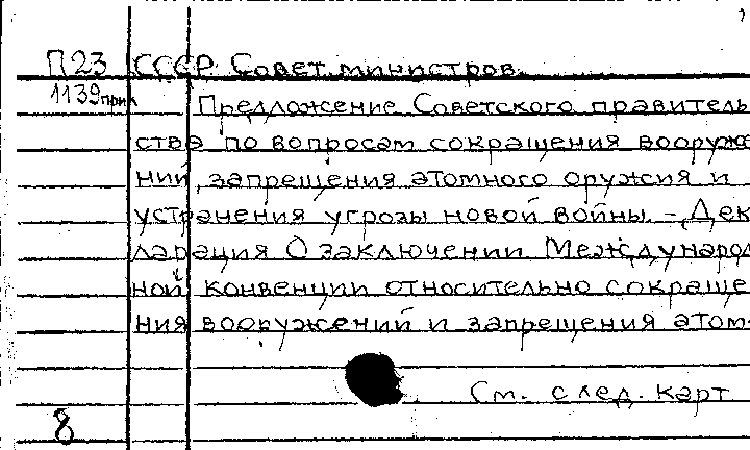 П23 СССР. Совет министров.
1139прил Предложение Советского правитель
ства по вопросам сокращения вооруже
ний, запрещения атомного оружия и
устранения угрозы новой войны. - Дек
ларация О заключении Международ
ной конвенции относительно сокраще
ния вооружений и запрещения атом-
См. след. карт
8